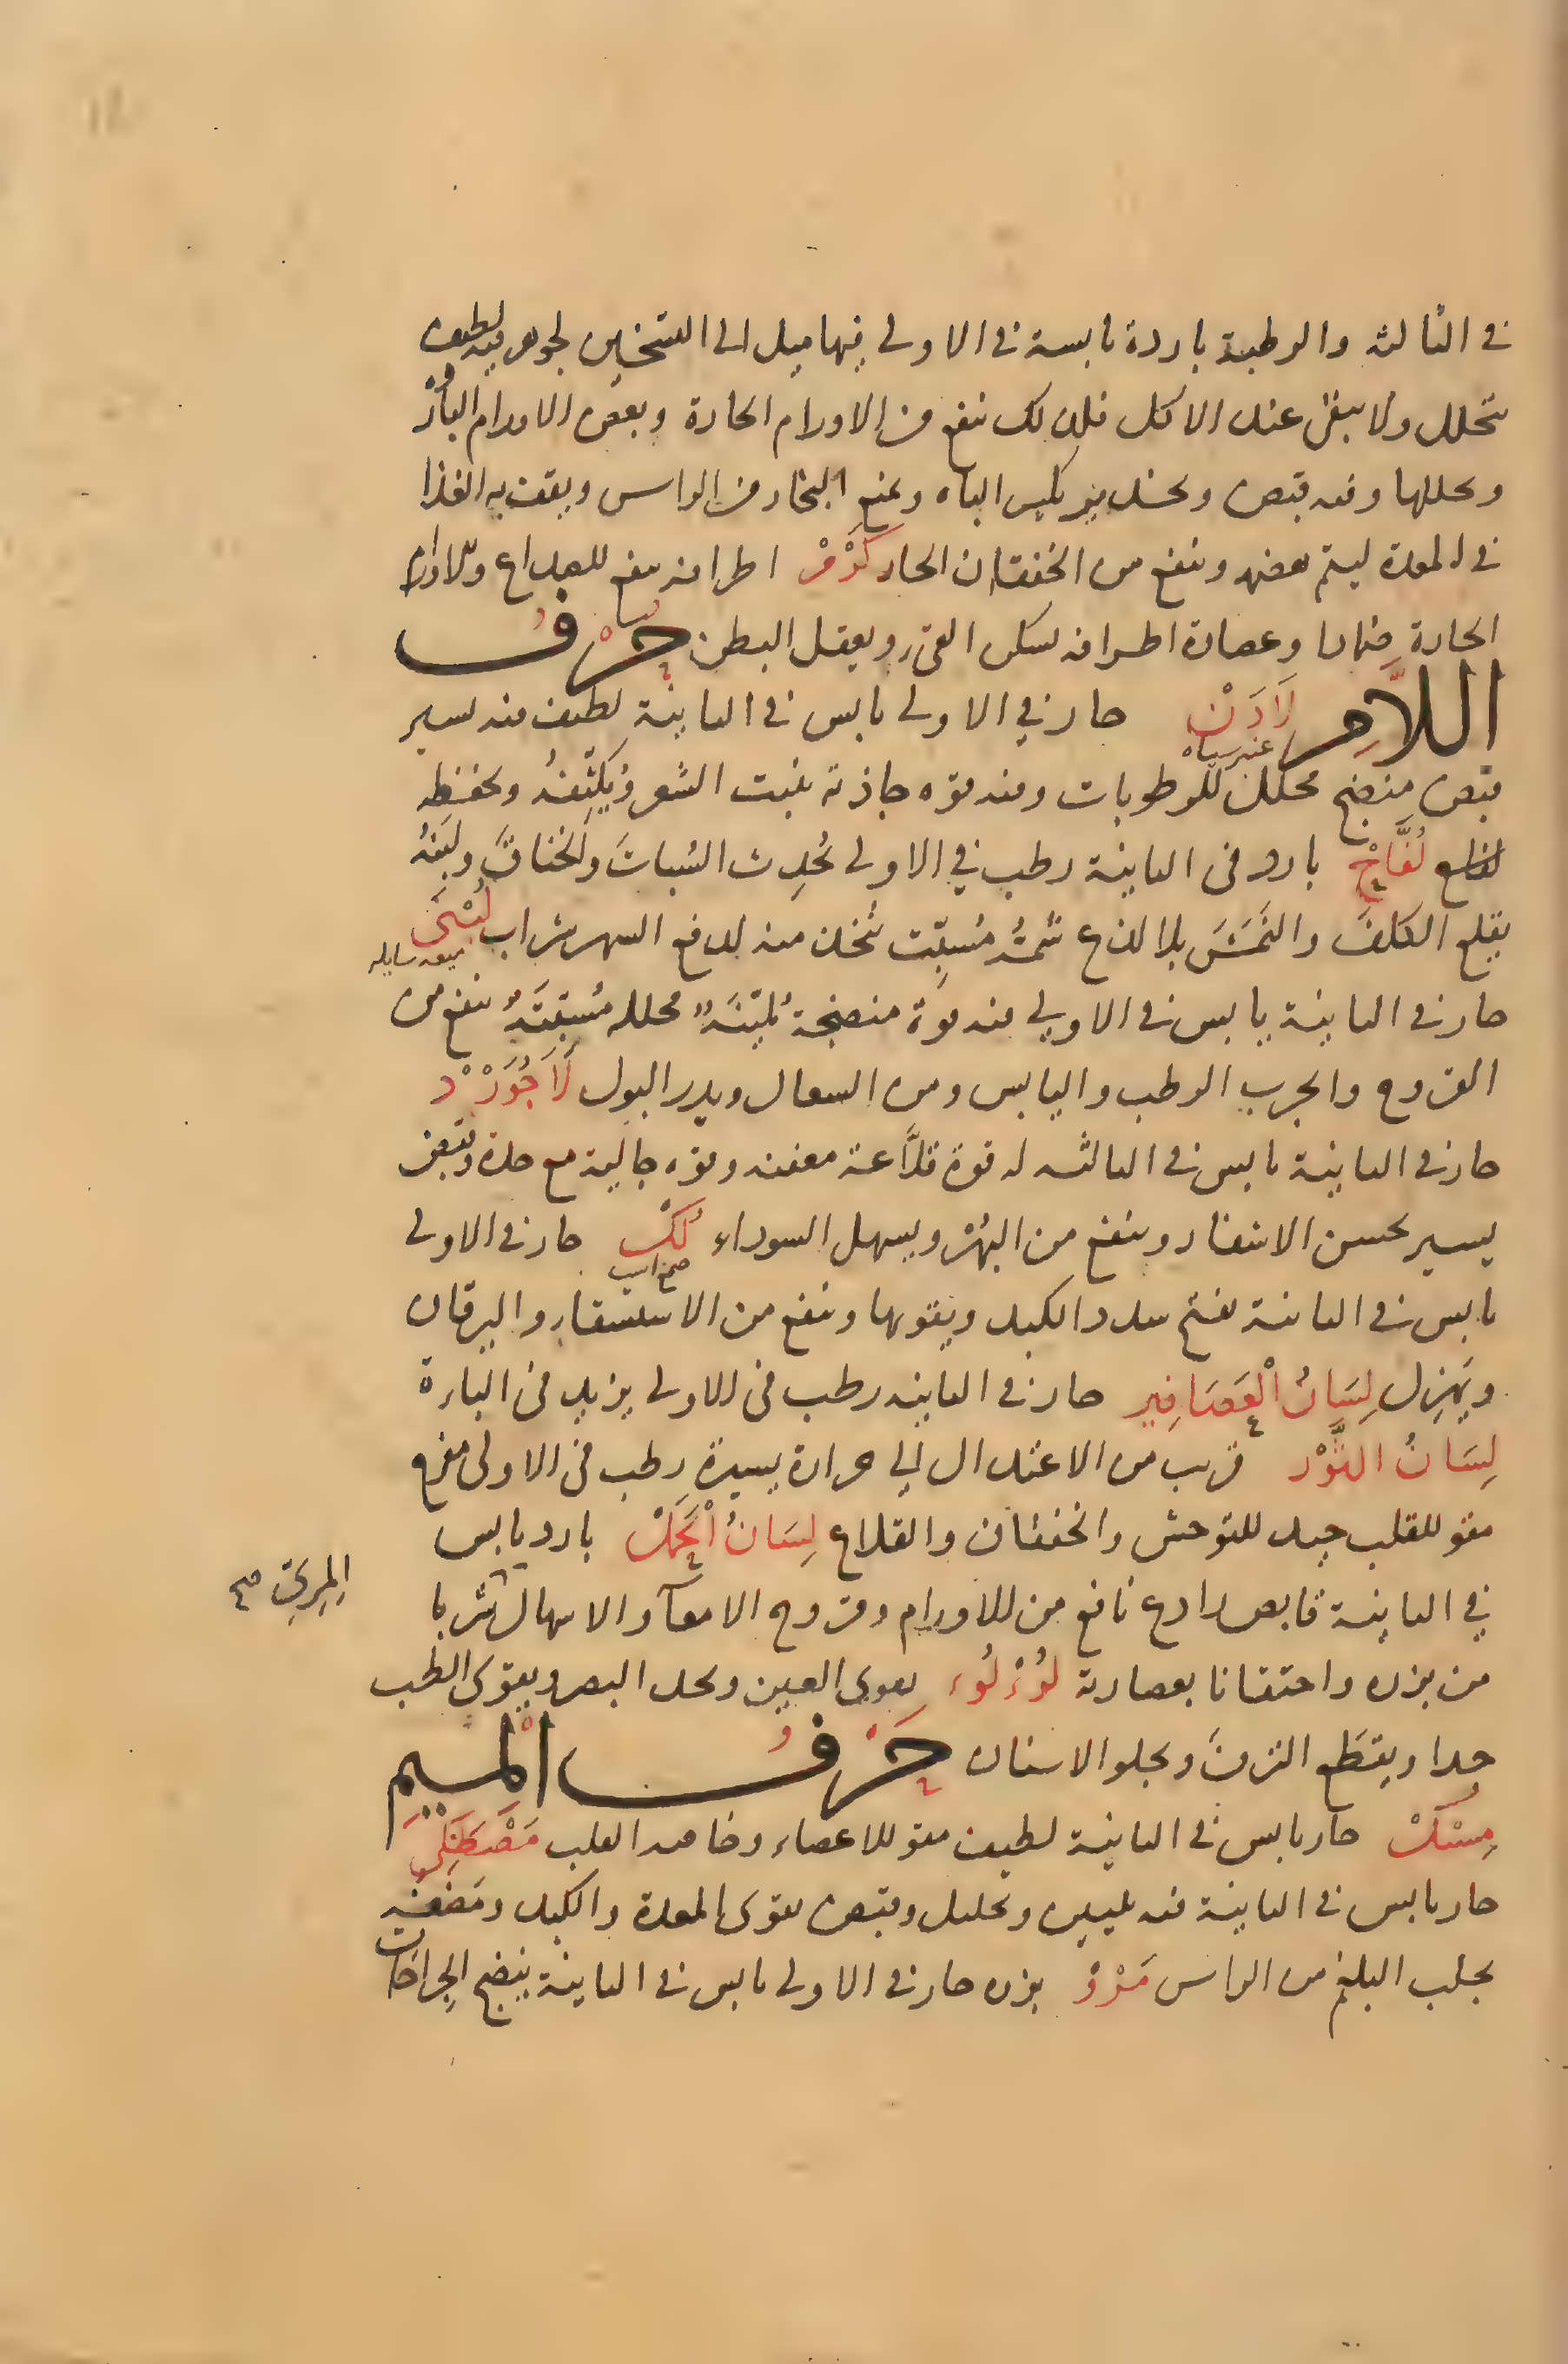 في الثالثه والرطبة باردة يابسة في الاولى فيها ميل الى التسخين لجوهر فيه لطيف
يتحلل ولا يبقى عند الاكل فلذلك ينفع من الاورام الحارة وبعض الاورام الباردة
ويحللها وفيه قبض وتخدير يكسر الباه ويمنع البخار من الراس ويقف به الغذا
في المعدة ليتم هضمه وينفع من الخفقان الحار كَرْمْ اطرافه ينفع للصداع وللاورام
الحارة ضمادا وعصارة اطرافه يسكن القئ ويعقل البطن حَرْفُ
اللاَّمِ لَادَنْ حار في الاولى يابس في الثانية لطيف فيه يسير
عنبر سياه
قبض منضج محلل للرطوبات وفيه قوه جاذبة ينبت الشعر ويُكَثِّفُهُ ويحفظه
لُفَّاحْ بارد في الثانية رطب في الاولى يُحدِث السُباتَ والخناقَ ولبنُهُ
يقلع الكلفَ والنَمَشَ بلا لذع شَمُّهُ مُسبِّت يُتخذ منه لدفع السهر شراب لُبْنَى
ميعه سايله
حار في الثانية يابس في الاولى فيه قوة منضجة مُليّنَة محلله مُسَبِّتَةٌ ينفع من
القروح والجرب الرطب واليابس ومن السعال ويدر البول لَاجُوَرْدْ
حار في الثانية يابس في الثالثه له قوة قلاَّعة معفنه وقوه جالية مع حدة وقبض
يسير يحسن الاشفار وينفع من البُهْر ويسهل السوداء لُكْ حار في الاولى
يابس في الثانية يفتح سدد الكبد ويقويها وينفع من الاستسقاء واليرقان
ويَهْزِل لِسَانُ الْعَصَافِير حار في الثانيه رطب في الاولى يزيد في الباءة
لِسَانُ الثَّوْر قريب من الاعتدال الى حرارة يسيرة رطب في الاولى مفرح
مقو للقلب جيد للتوحش والخفقان والقلاع لِسَانُ الْحَمَلْ بارد يابس
في الثانية قابض رادع نافع من الاورام وقروح الامعآ والاسهال المِرّى صح شربا
من بزره واحتقانا بعصارته لُؤْلُوء يقوى العين ويحد البصر ويقوى القلب
جدا ويقطَع النزفَ ويجلو الاسنان حَرْفُ الْمِيمِ
مِسْكْ حار يابس في الثانية لطيف مقو للاعضاء وخاصه القلب مَصْطَكِى
حار يابس في الثانية فيه تليين وتحليل وقبض يقوى المعدة والكبد ومَضْغُه
يجلب البلغم من الراس مَرْوْ بزره حار في الاولى يابس في الثانية ينضج الجراحات